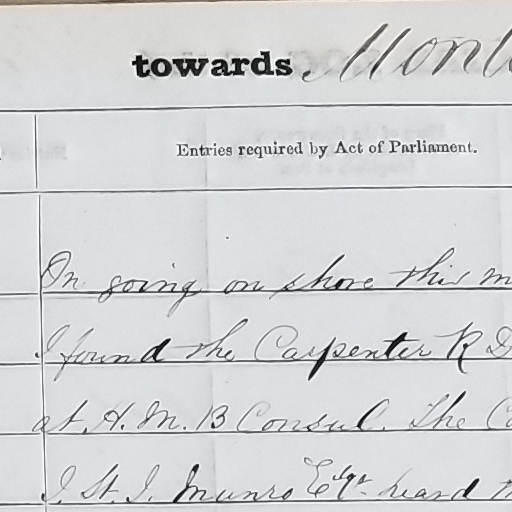 towards Mont
Entries required by Act of Parliament.
On going on shore this m
I found the Carpenter R D
at H. M. B Consul. The C
J. St. J. Munro Esqr heard th